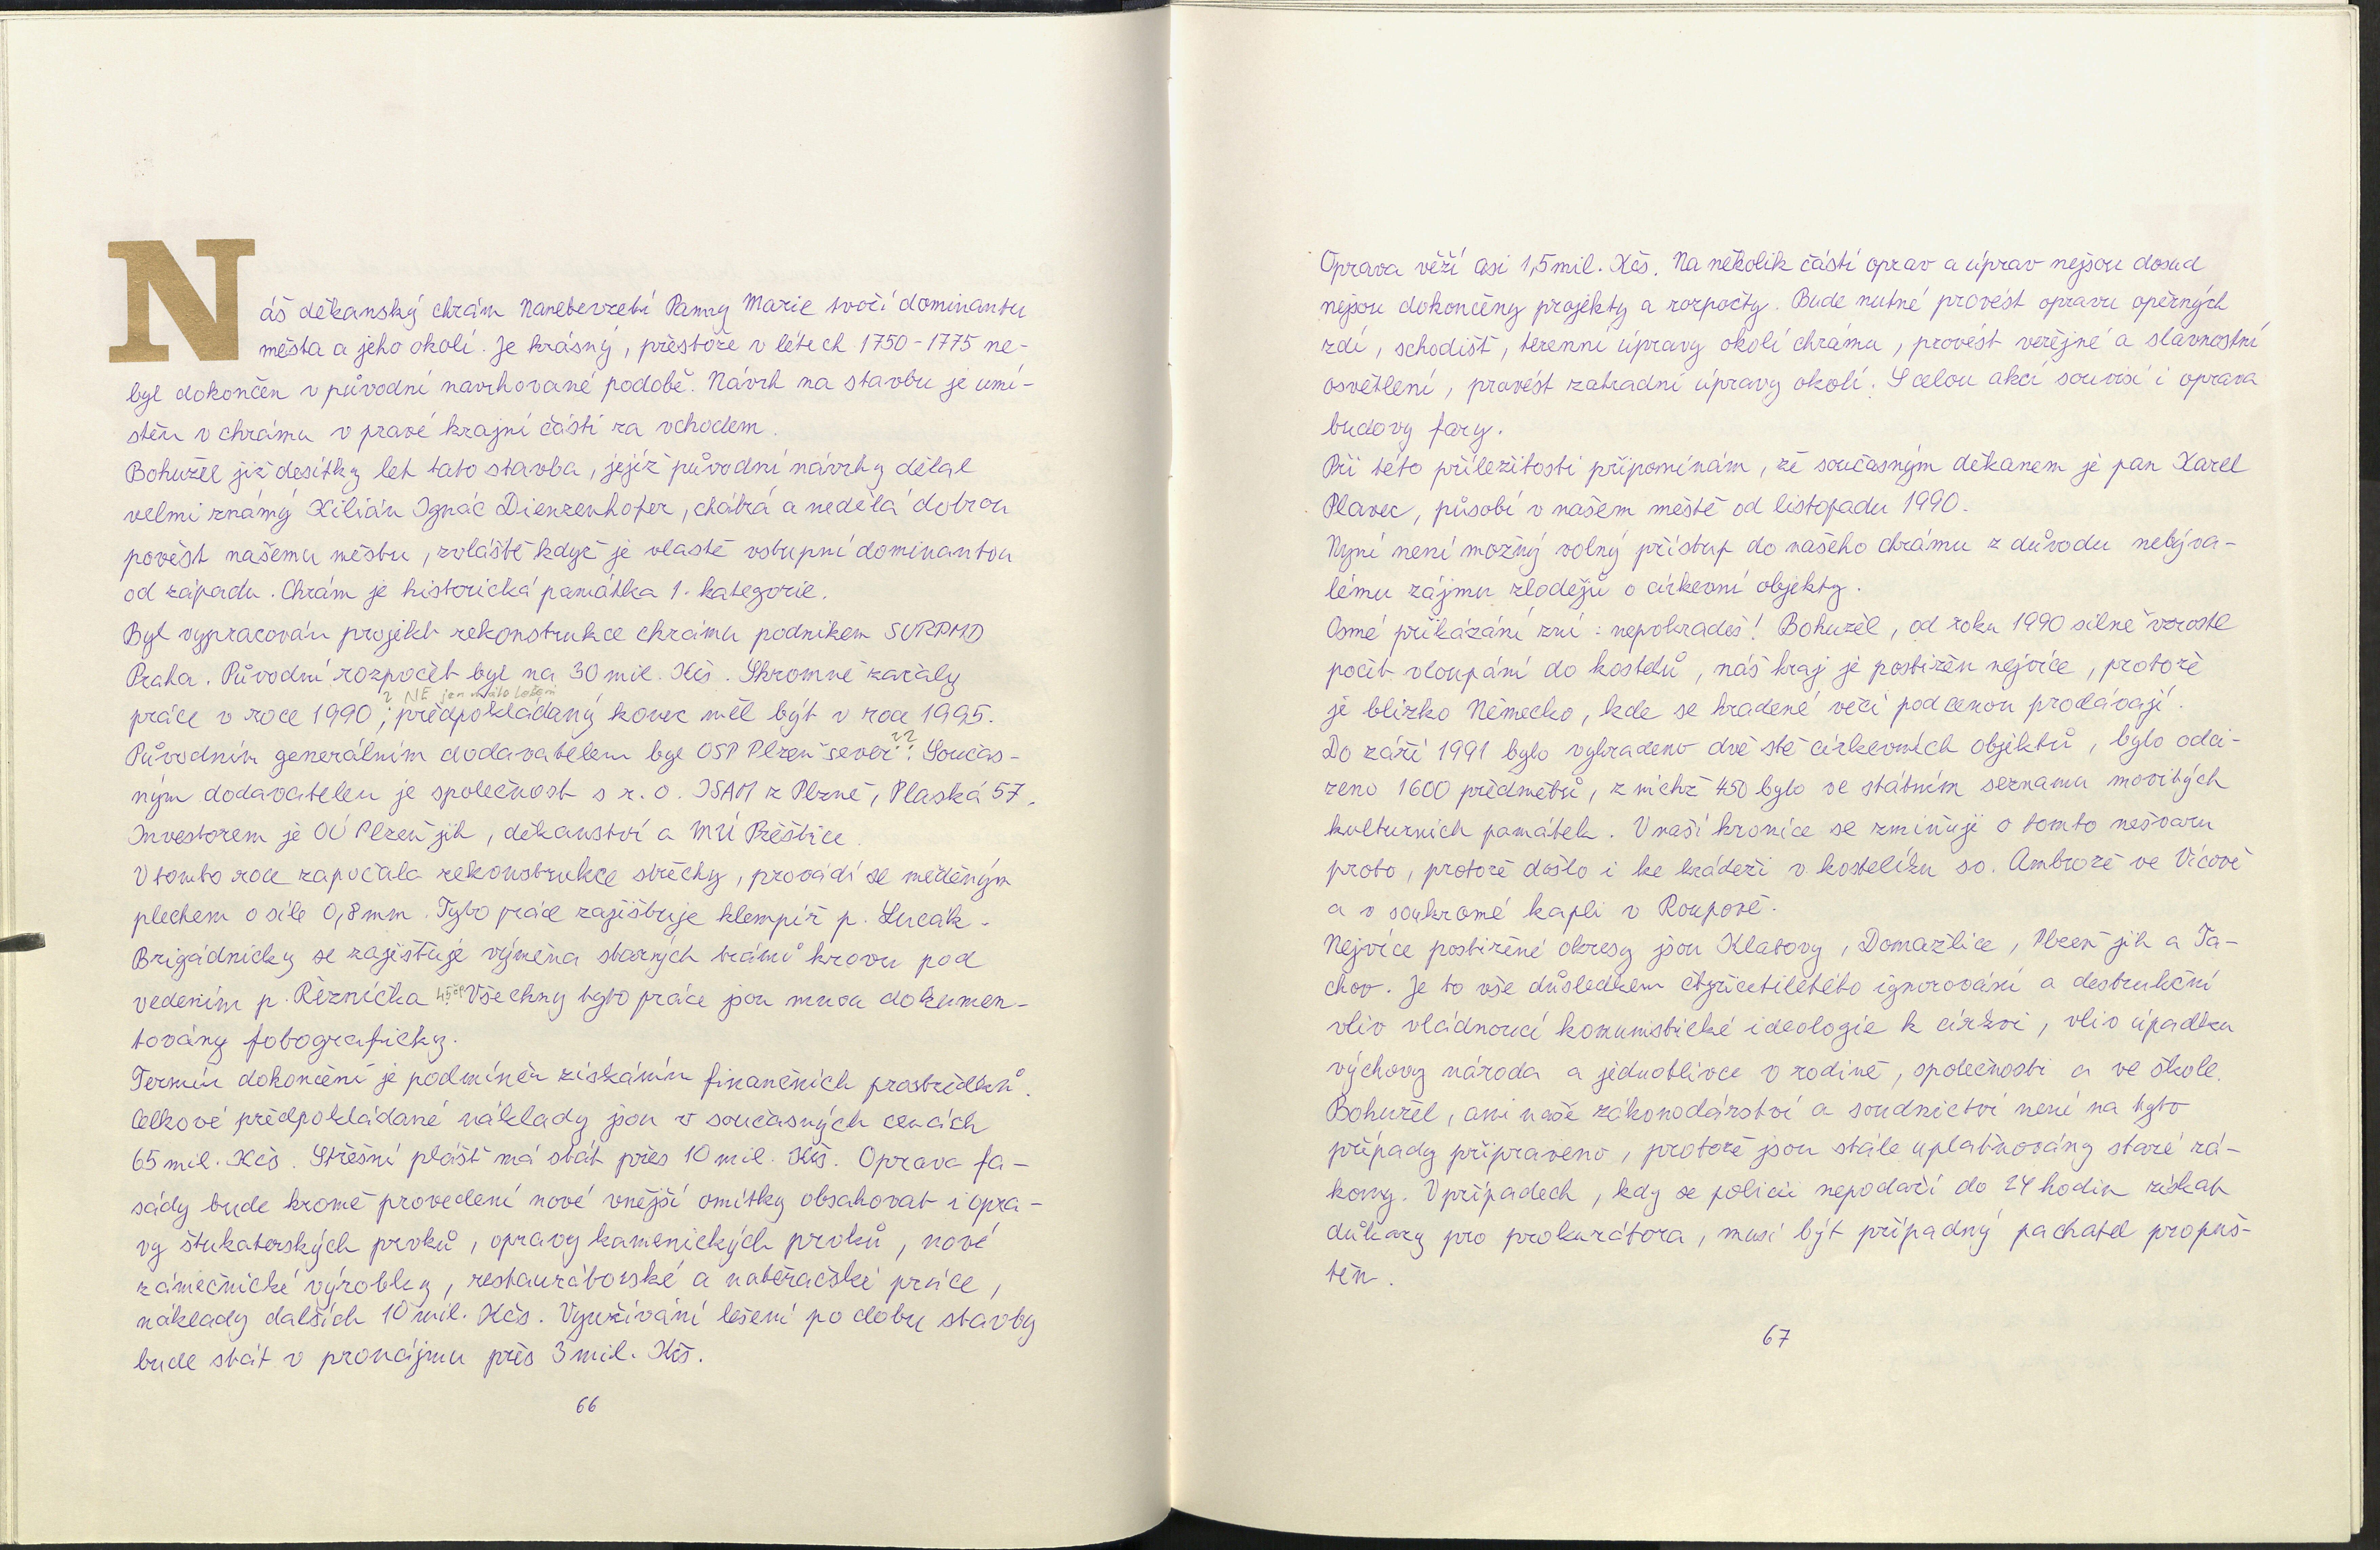 Náš děkanský chrám Nanebevzetí Panny Marie tvoří dominantu
města a jeho okolí. Je krásný, přestože v létech 1750-1775 ne-
byl dokončen v původní navrhované podobě. Návrh na stavbu je umí-
stěn v chrámu v pravé krajní části za vchodem.
Bohužel již desítky let tato stavba, jejíž původní návrhy dělal
velmi známý Kilián Ignác Dienzenhofer, chátrá a nedělá dobrou
pověst našemu městu, zvláště když je vlastě vstupní dominantou
od západu. Chrám je historická památka 1. kategorie.
Byl vypracován projekt rekonstrukce chrámu podnikem SURPMO
Praha. Původní rozpočet byl na 30 mil. Kčs. Skromně začaly
? NE jen lešení
práce v roce 1990, předpokládaný konec měl být v roce 1995.
Původním generálním dodavatelem byl OSP Plzeň sever??. Součas-
ným dodavatelem je společnost s r.o. ISAM z Plzně, Plaská 57.
Investorem je OÚ Plzeň jih, děkanství a MÚ Přeštice.
V tomto roce započala rekonstrukce střechy, provádí se měděným
plechem o síle 0,8 mm. Tyto práce zajišťuje klempíř p. Lucák.
Brigádnicky se zajišťuje výměna starých trámů krovu pod
vedením p. Řezníčka Všechny tyto práce jsou mnou dokumen-
továny fotograficky.
Termín dokončení je podmíněn získáním finančních prostředků.
Celkové předpokládané náklady jsou v současných cenách
65 mil. Kčs. Střešní plášť má stát přes 10 mil. Kčs. Oprava fa-
sády bude kromě provedení nové vnější omítky obsahovat i opra-
vy štukaterských prvků, opravy kamenických prvků, nové
zámečnické výrobky, restaurátorské a natěračské práce,
náklady dalších 10 mil. Kčs. Využívání lešení po dobu stavby
bude stát v pronájmu přes 3 mil. Kčs.
66
Oprava věží asi 1,5 mil. Kčs. Na několik částí oprav a úprav nejsou dosud
nejsou dokončeny projekty a rozpočty. Bude nutné provést opravu opěrných
zdí, schodišť, terenní úpravy okolí chrámu, provést veřejné a slavnostní
osvětlení, provést zahradní úpravy okolí. S celou akcí souvisí i oprava
budovy fary.
Při této příležitosti připomínám, že současným děkanem je pan Karel
Plavec, působí v našem městě od listopadu 1990.
Nyní není možný volný přístup do našeho chrámu z důvodu nebýva-
lému zájmu zlodějů o církevní objekty.
Osmé přikázání zní: nepokradeš! Bohužel, od roku 1990 silně vzrostl
počet vloupání do kostelů, náš kraj je postižen nejvíce, protože
je blízko Německo, kde se kradené věci pod cenou prodávají.
Do září 1991 bylo vykradeno dvě stě církevních objektů, bylo odci-
zeno 1600 předmětů, z nichž 450 bylo ve státním seznamu movitých
kulturních památek. V naší kronice se zmiňuji o tomto nešvaru
proto, protože došlo i ke krádeži v kostelíku sv. Ambrože ve Vícově
a v soukromé kapli v Roupově.
Nejvíce postižené okresy jsou Klatovy, Domažlice, Plzeň jih a Ta-
chov. Je to vše důsledkem čtyřicetiletého ignorování a destrukční
vliv vládnoucí komunistické ideologie k církvi, vliv úpadku
výchovy národa a jednotlivce v rodině, společnosti a ve škole.
Bohužel, ani naše zákonodárství a soudnictví není na tyto
případy připraveno, protože jsou stále uplatňovány staré zá-
kony. V případech, kdy se policii nepodaří do 24 hodin získat
důkazy pro prokurátora, musí být případný pachatel propuš-
těn.
67